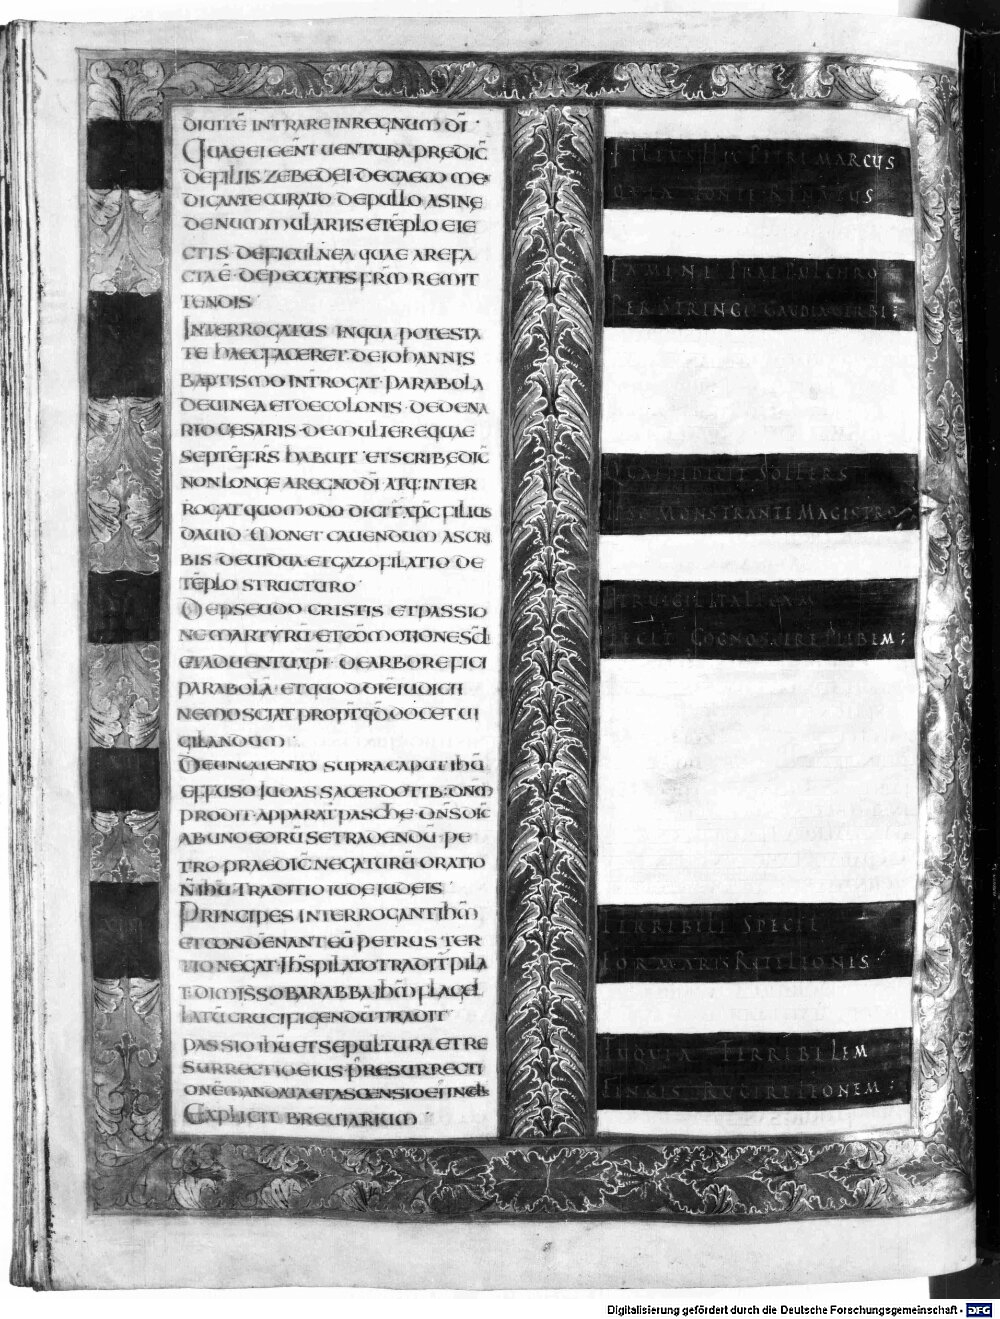 DIUITĒ INTRARE IN REGNUM DĪ ·
QUAE EI EĒNT UENTURA PRĘDIC̄
DE FILIIS ZEBEDEI · DE CAECO ME
DICANTE CURATO · DE PULLO ASINĘ
DE NUMMULARIIS E TĒPLO EIE
CTIS · DE FICULNEA QUAE AREFA
CTA Ē · DE PECCATIS FR̄M REMIT
TENDIS ·
INTERROGATUS IN QUA POTESTA
TE HAEC FACERET · DE IOHANNIS
BAPTISMO INTROGAT · PARABOLA
DE UINEA ET DE COLONIS · DE DENA
RIO CESARIS · DE MULIERE QUAE
SEPTĒ FR̄S HABUIT · ET SCRIBĘ DIC̄
NON LONGE A REGNO DĪ ATQ: INTER
ROGAT QUOMODO DICIT XP̄C FILIUS
DAUID · MONET CAUENDUM A SCRI
BIS · DE UIDUA ET GAZOFILATIO DE
TĒPLO STRUCTURO ·
DE PSEUDO CRISTIS ET PASSIO
NE MARTYRŪ ET CŌMOTIONE SCL̄I
ET ADUENTU XPĪ · DE ARBORE FICI
PARABOLĀ · ET QUOD DIĒ IUDICII
NEMO SCIAT PROPT QD̄ DOCET UI
GILANDUM ·
DE UNGUENTO SUPRA CAPUT IHŪ
EFFUSO IUDAS SACERDOTIB: DN̄M
PRODIT · APPARAT PASCHE · DN̄S DIC̄
AB UNO EORŪ SE TRADENDŪ · PE
TRO PRAEDIC̄ NEGATURŪ ORATIO
N̄ IHŪ · TRADITIO IUDE IUDEIS ·
PRINCIPES INTERROGANT IHM̄
ET CONDĒNANT EŪ PETRUS TER
TIO NEGAT · IHS̄ PILATO TRADIT PILA
T · DIMISSO BARABBA IHM̄ FLAGEL
LATŪ CRUCIFIGENDŪ TRADIT ·
PASSIO IHŪ ET SEPULTURA ET RE
SURRECTIO EIUS · P̄ RESURRECTI
ONĒ MANDATA ET ASCENSIO EĪ IN CELIS
EXPLICIT BREUIARIUM ·
FILIUS HIC PETRI MARCUS
QUIA FONTE RENATUS
FAMINE PRAEPULCHRO
PERSTRINGIT GAUDIA UERBI ;
QUAE DIDICIT SOLLERS
MONSTRANTE MAGISTRO
PERUIGIL ITALICAM
FECIT COGNOSCERE PLEBEM ;
TERRIBILI SPECIE
FORMARIS RITE LEONIS ·
TU QUIA TERRIBILEM
FINGIS RUGIRE LEONEM ;
Digitalisierung gefördert durch die Deutsche Forschungsgemeinschaft - DFG